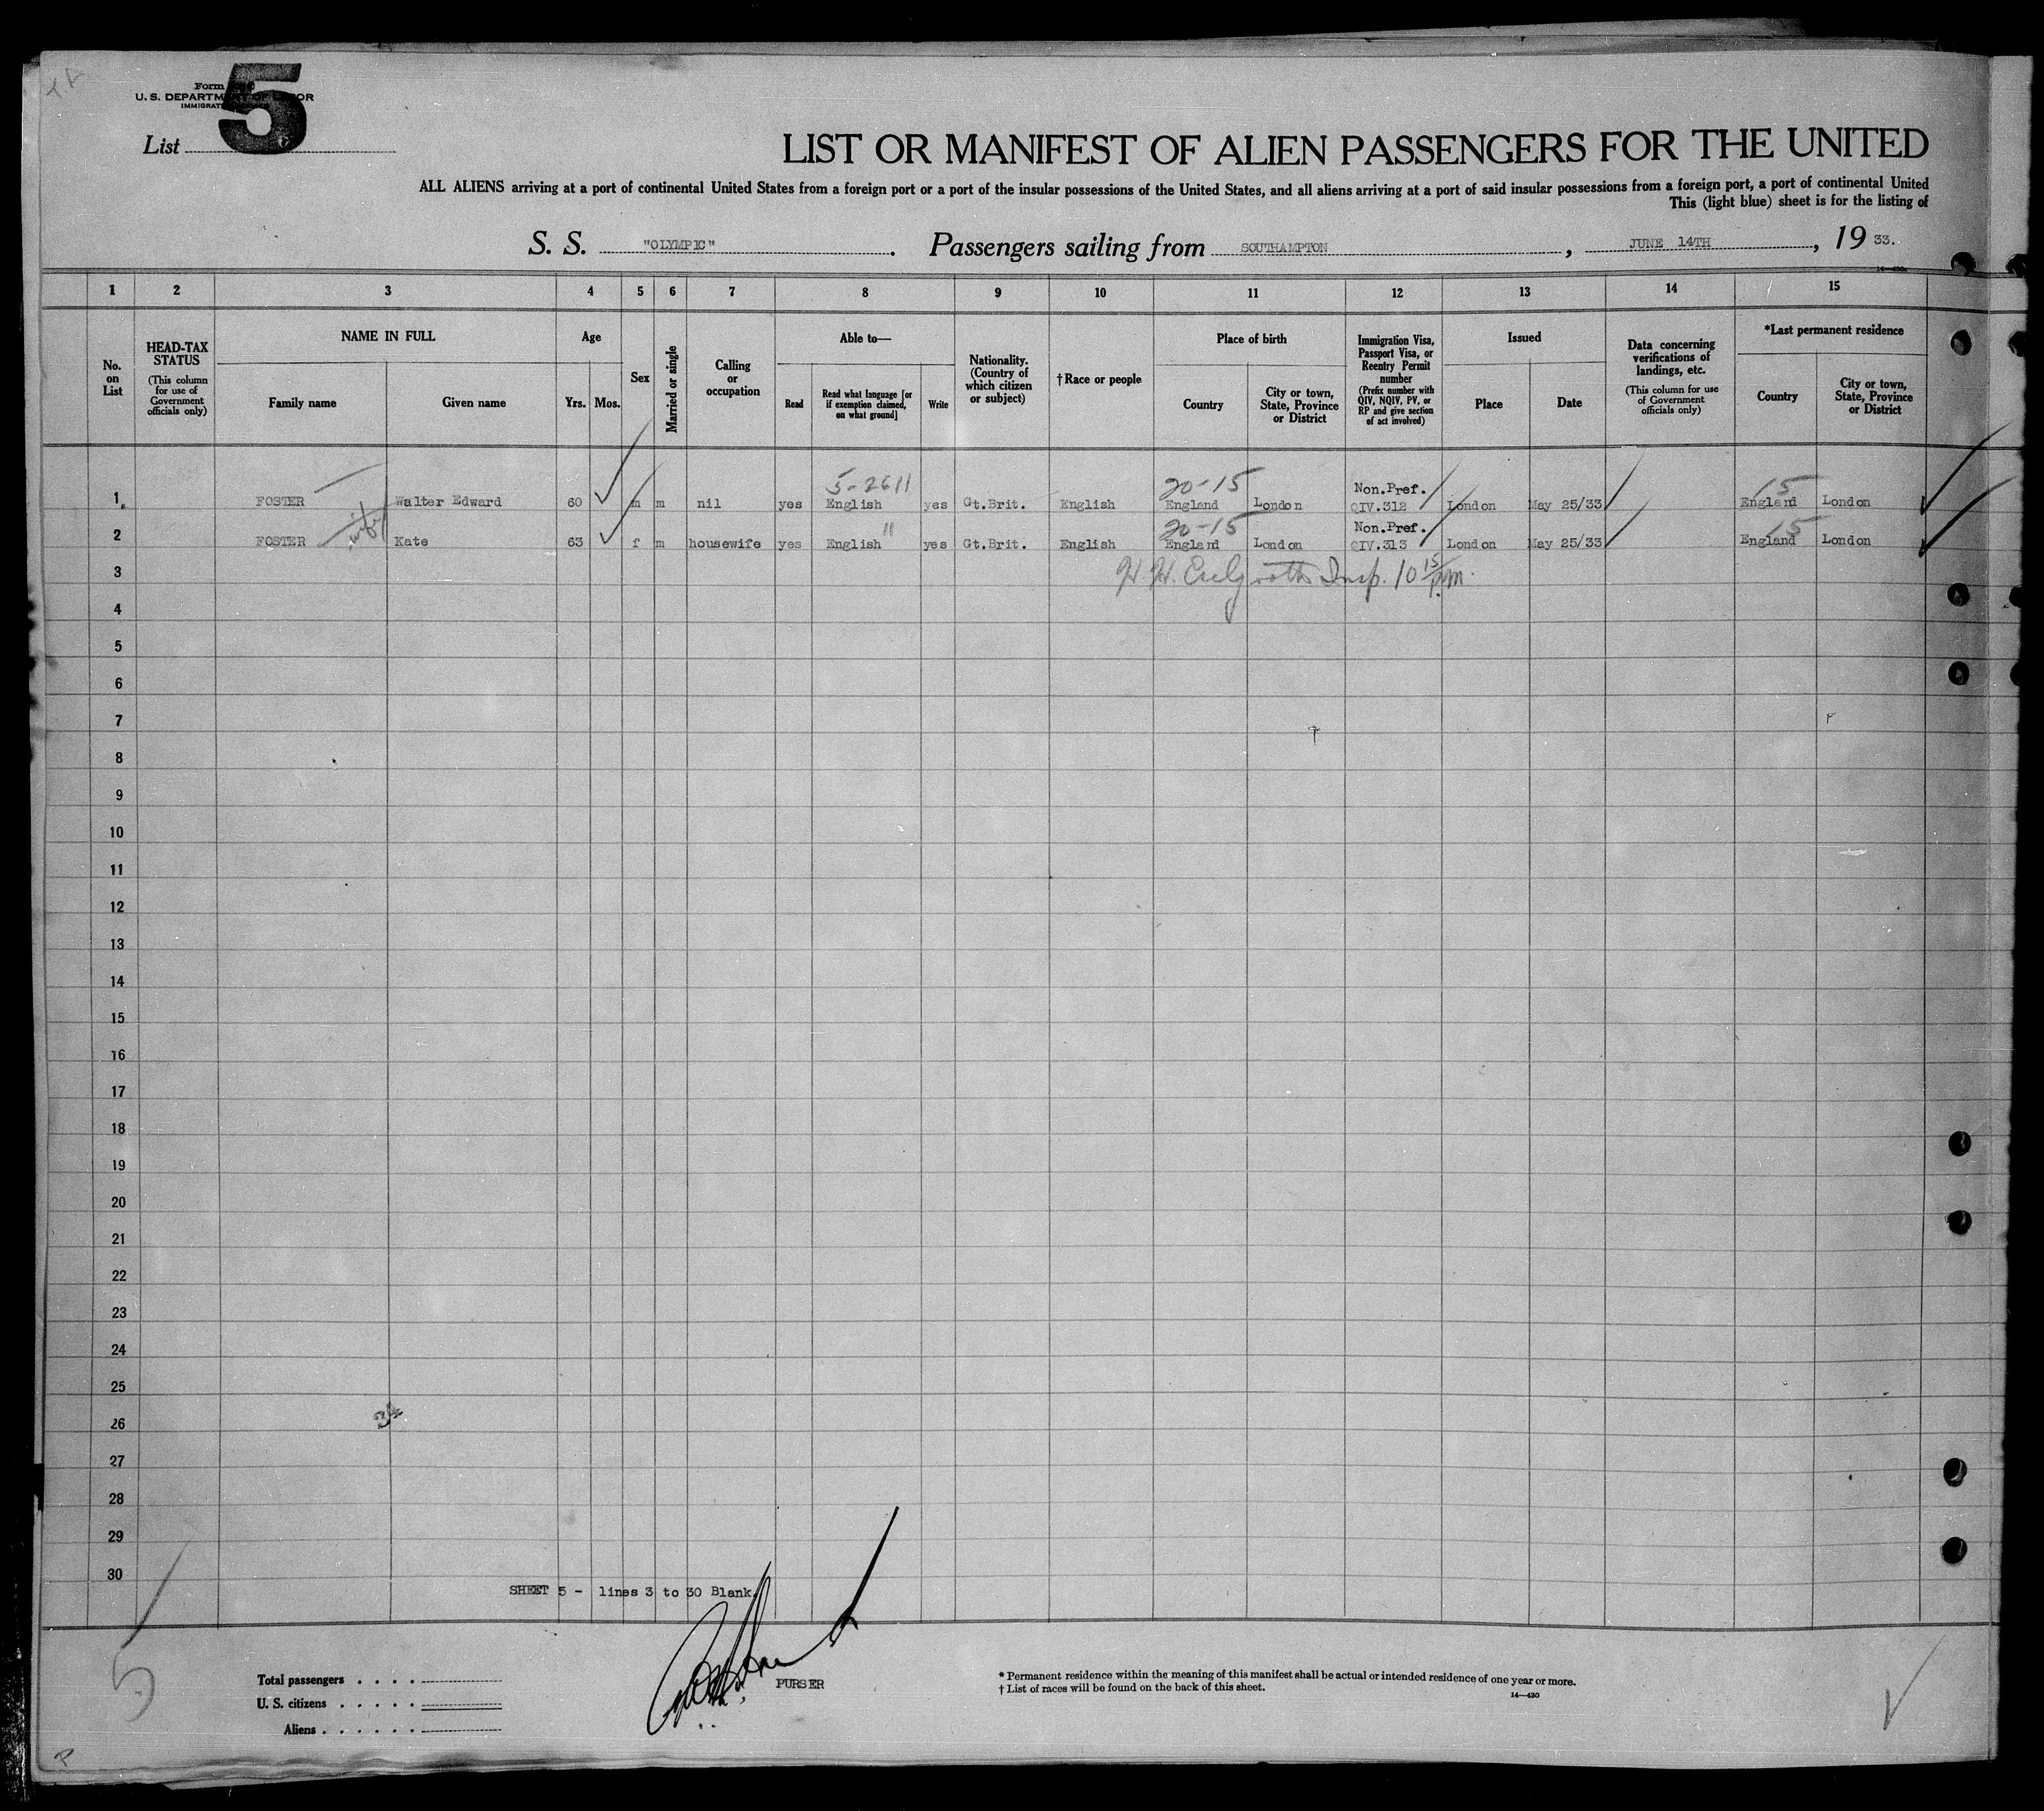 Form
U. S. DEPARTMENT OF LABOR
IMMIGRAT
List 5
LIST OR MANIFEST OF ALIEN PASSENGERS FOR THE UNITED
ALL ALIENS arriving at a port of continental United States from a foreign port or a port of the insular possessions of the United States, and all aliens arriving at a port of said insular possessions from a foreign port, a port of continental United
This (light blue) sheet is for the listing of
S. S. "OLYMPIC". Passengers sailing from SOUTHAMPTON, JUNE 14TH, 19 33.
1 2 3 4 5 6 7 8 9 10 11 12 13 14 15
No. on List
HEAD-TAX STATUS
(This column for use of Government officials only)
NAME IN FULL
Family name
Given name
Age
Yrs. Mos.
Sex
Married or single
Calling or occupation
Able to—
Read
Read what language [or if exemption claimed, on what ground]
Write
Nationality. (Country of which citizen or subject)
†Race or people
Place of birth
Country
City or town, State, Province or District
Immigration Visa, Passport Visa, or Reentry Permit number
(Prefix number with QIV, NQIV, PV, or RP and give section of act involved)
Issued
Place
Date
Data concerning verifications of landings, etc.
(This column for use of Government officials only)
*Last permanent residence
Country
City or town, State, Province or District
5-2611 20-15 Non.Pref. 15
1 FOSTER Walter Edward 60 m m nil yes English yes Gt.Brit. English England London QIV.312 London May 25/33 England London
wife " 20-15 Non.Pref. 15
2 FOSTER Kate 63 f m housewife yes English yes Gt.Brit. English England London QIV.313 London May 25/33 England London
3 H. H. Insp. 10 15 P.M.
4
5
6
7
8
9
10
11
12
13
14
15
16
17
18
19
20
21
22
23
24
25
26 34
27
28
29
30
SHEET 5 - lines 3 to 30 Blank.
5
Total passengers . . . .
U. S. citizens . . . . .
Aliens . . . . . .
PURSER
* Permanent residence within the meaning of this manifest shall be actual or intended residence of one year or more.
† List of races will be found on the back of this sheet.
14—430